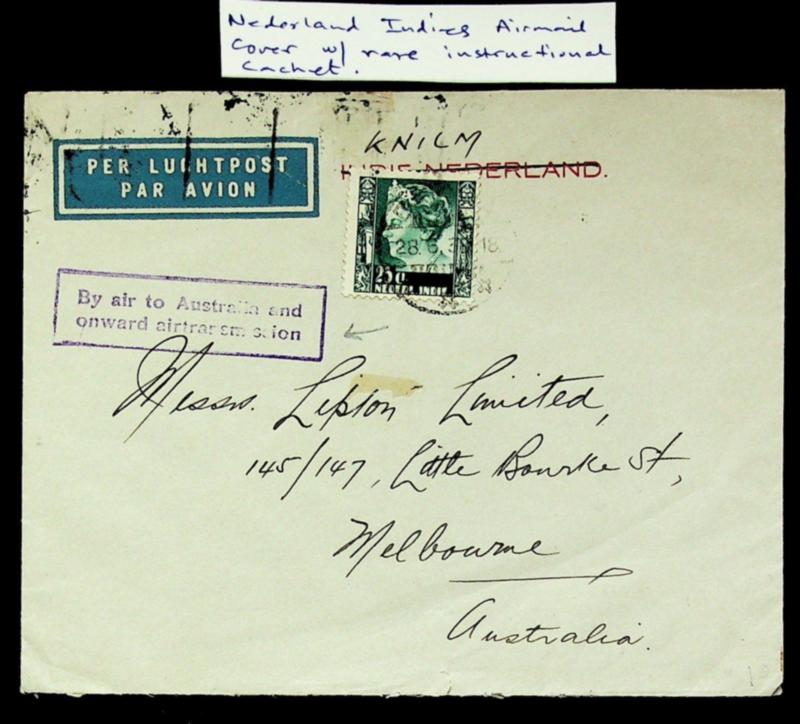 Nederland Indies Airmail
Cover w/ rare instructional
Cachet.
KNILM
PER LUCHTPOST
PAR AVION
NEDERLAND.
28.6.
18
25 C
NEDERL. INDIE
By air to Australia and
onward airtransmission
Messrs. Lipton Limited,
145/147, Little Bourke St,
Melbourne
Australia.